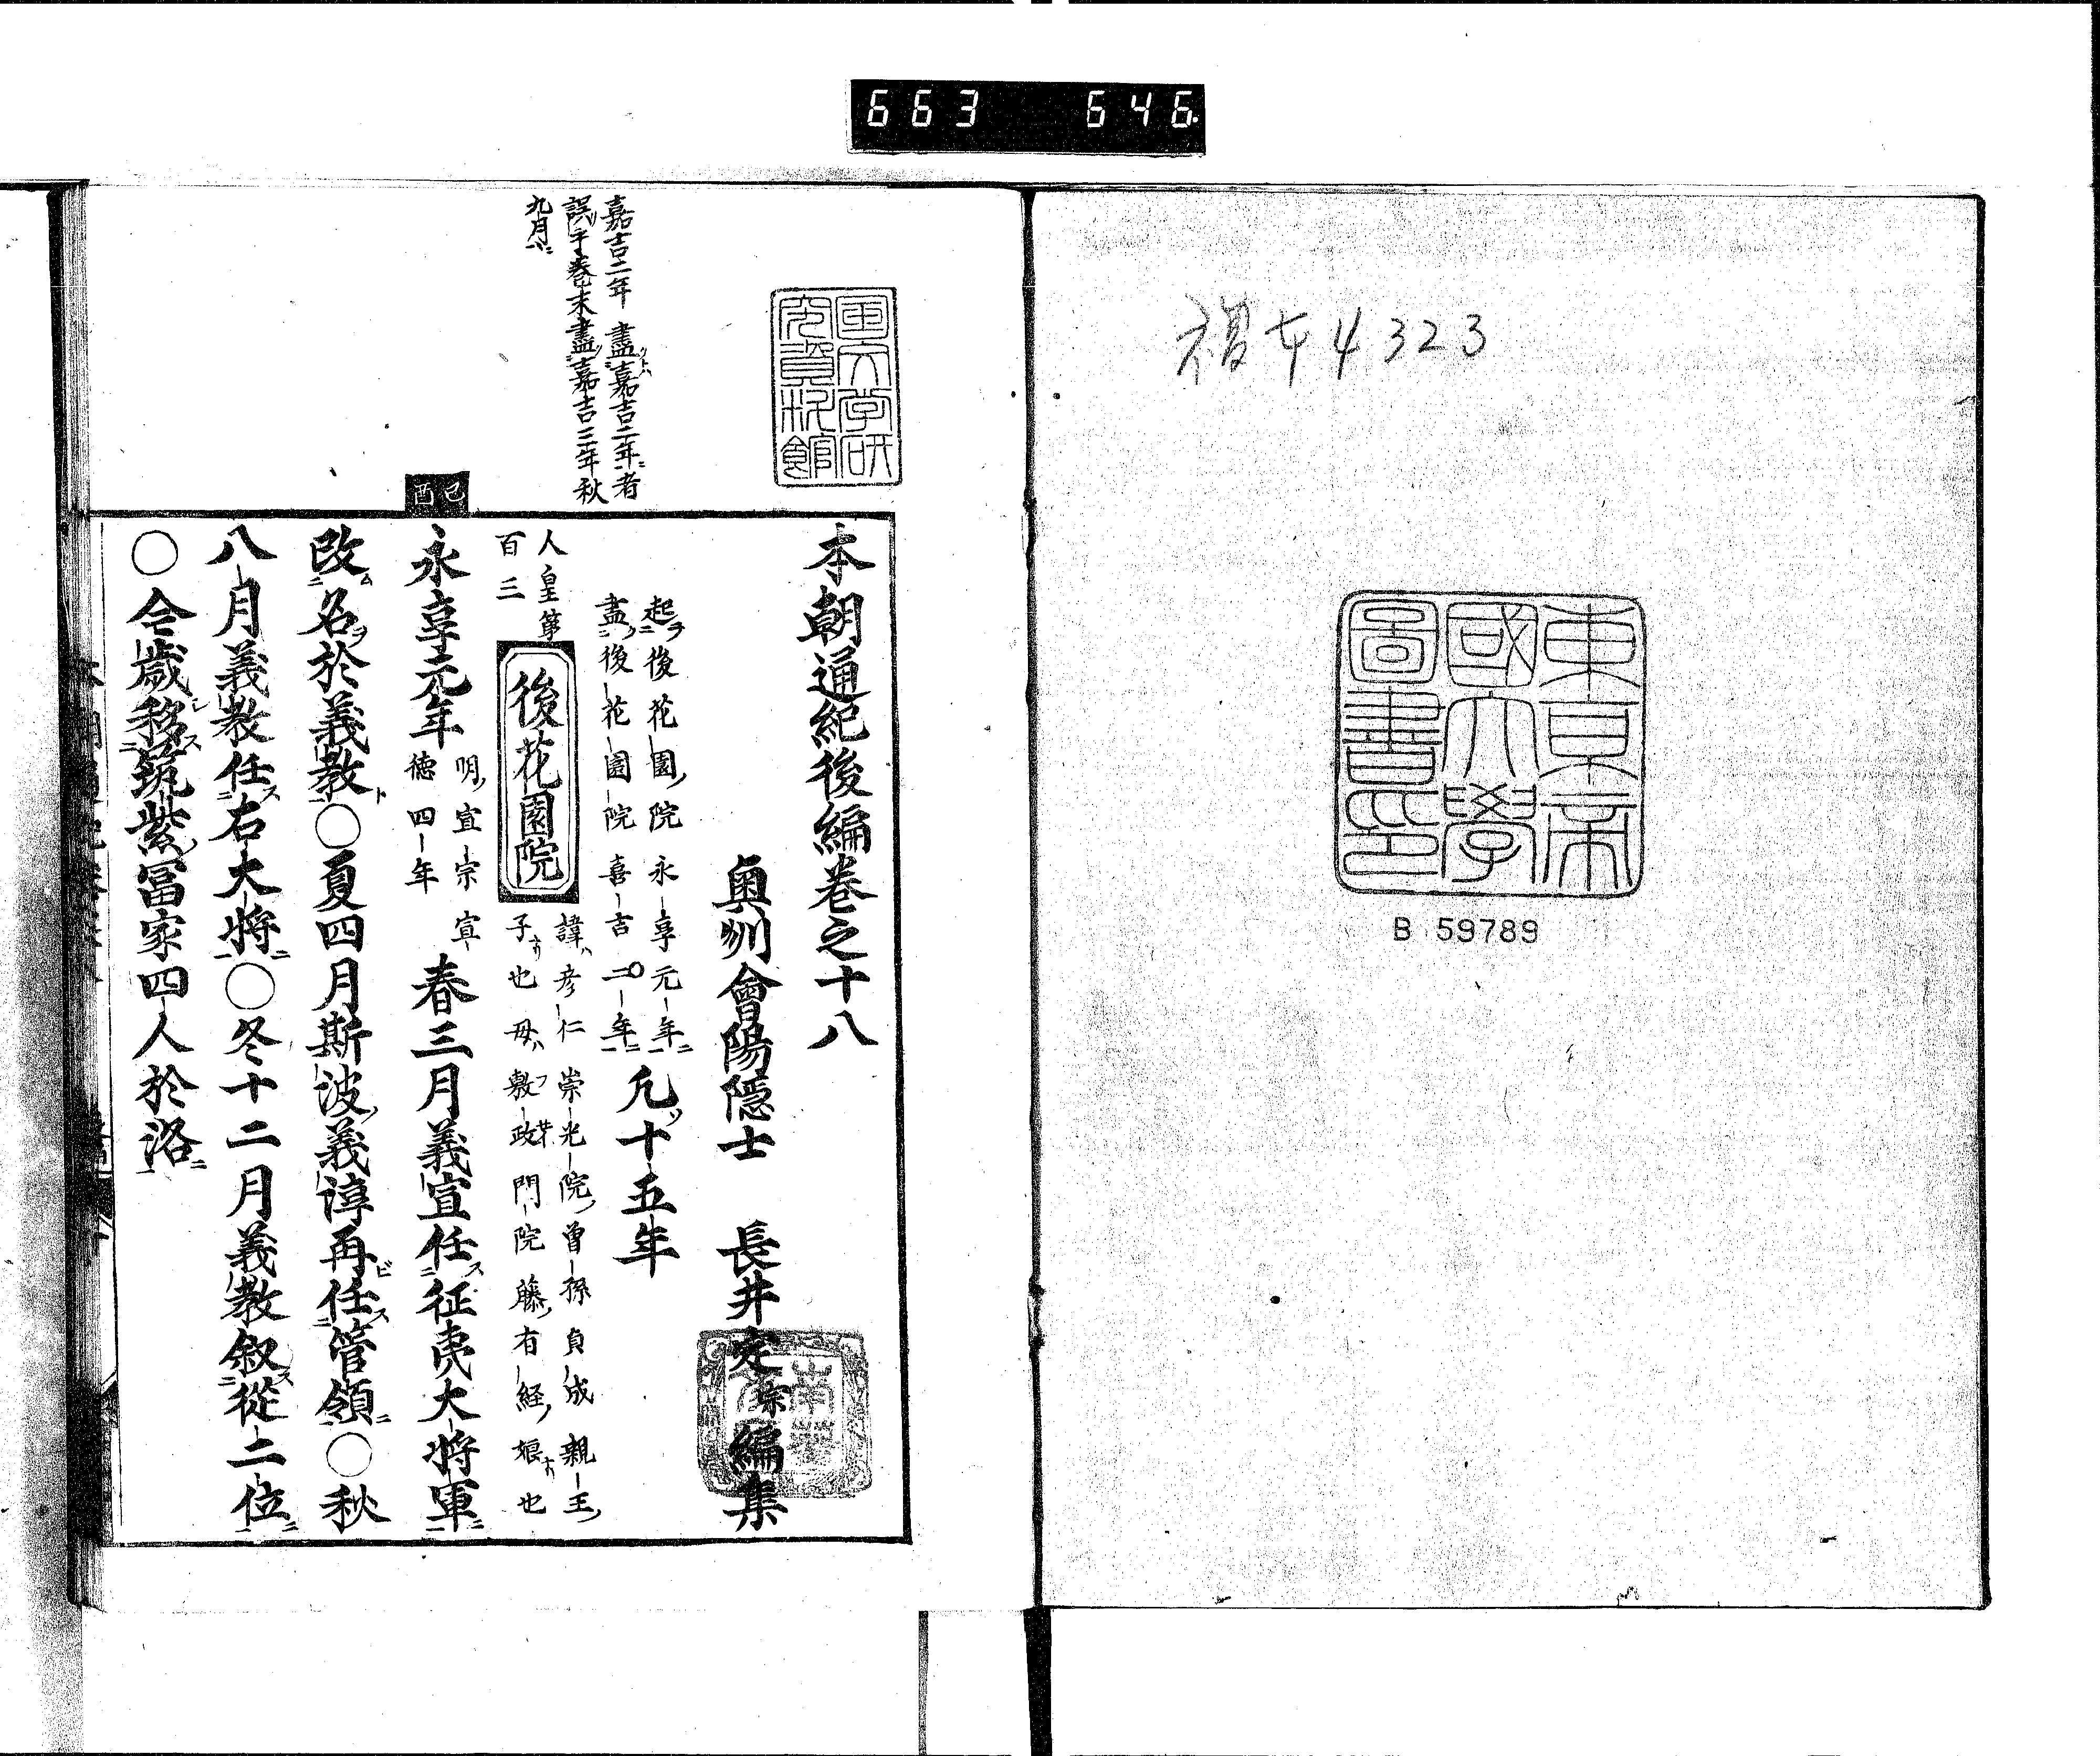 663 646
複本4323
東京帝
國大學
圖書印
B 59789
国文学研
究資料館
嘉吉二年 盡嘉吉二年者
誤乎卷末盡嘉吉三年秋
九月
本朝通紀後編卷之十八
奧州會陽隱士 長井定宗編集
起後花園院永享元年
盡後花園院嘉吉二年
凡十五年
人皇第
百三
後花園院
諱彦仁崇光院曾孫貞成親王
子也母敷政門院藤有経娘也
己酉
永享元年
明宣宗宣
德四年
春三月義宣任征夷大將軍
改名於義教○夏四月斯波義淳再任管領○秋
八月義教任右大將○冬十二月義教叙從二位
○今歲移筑紫富家四人於洛